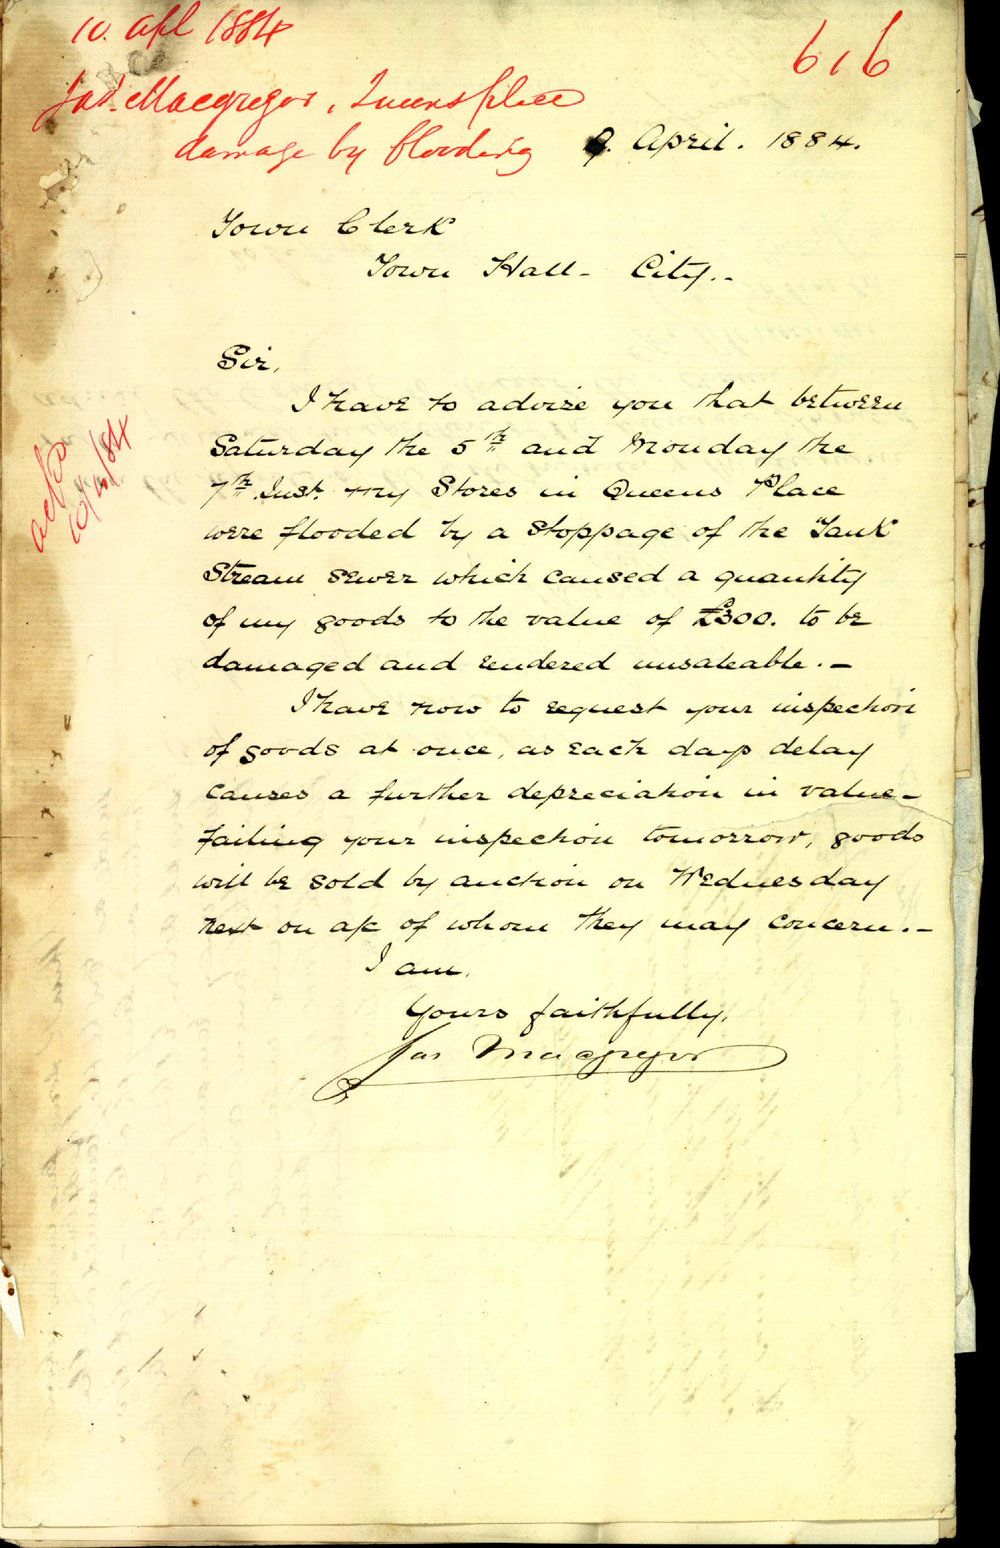 10. Apl 1884
616
Jas. Macgregor, Queens place
damage by flooding
9. April. 1884.
Town Clerk
Town Hall - City. -
Sir,
I have to advise you that between
Saturday the 5th and Monday the
7th Inst. my Stores in Queens Place
were flooded by a stoppage of the Tank
Stream sewer which caused a quantity
of my goods to the value of £300. to be
damaged and rendered unsaleable. -
I have now to request your inspection
of goods at once, as each days delay
causes a further depreciation in value -
failing your inspection tomorrow, goods
will be sold by auction on Wednesday
next on a/c of whom they may concern. -
I am,
Yours faithfully,
Jas Macgregor
10/4/84